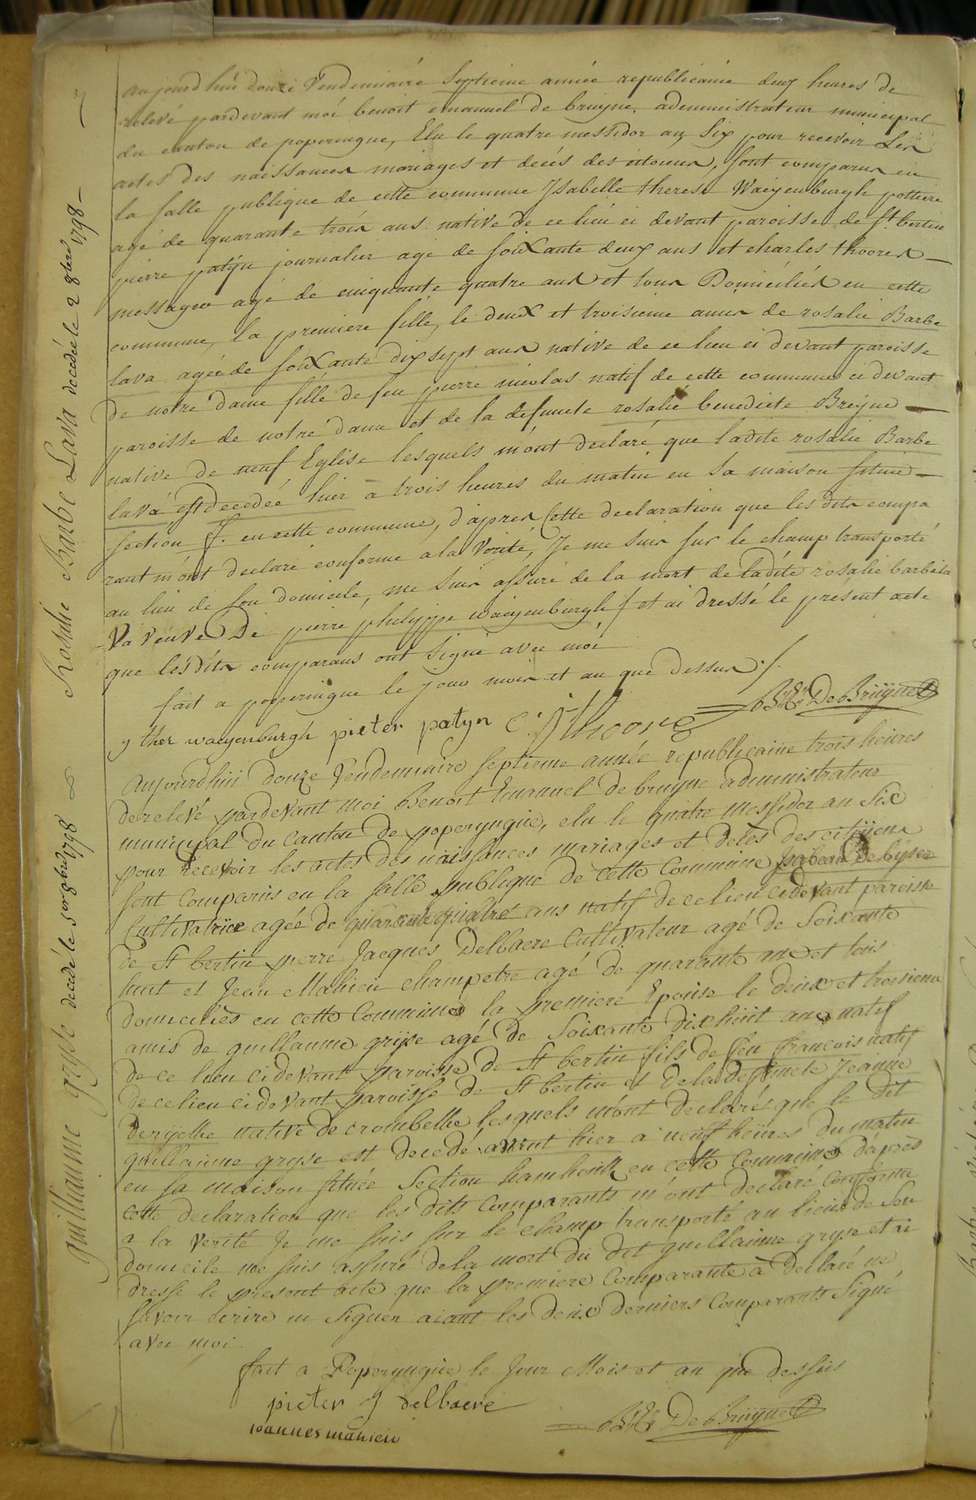 aujourd'hui douze Vendemiaire Septieme année republicaine deux heures de
relevé pardevant moi benoit emanuel de bruyne, administrateur municipal
du canton de poperingue, Elu le quatre messidor an Six pour recevoir Les
actes des naissances mariages et décés des citoiens, sont comparus en
la salle publique de cette commune Isabelle therese Waeyenburgh
agé de quarante trois ans native de ce lieu ci devant paroisse de St. bertin
pierre patijn journalier agé de soixante deux ans et charles thooren
messager agé de cinquante quatre ans et tous Domiciliés en cette
commune, la premiere fille, le deux et troisieme amis de rosalie Barbe
lava agée de soixante dix sept ans native de ce lieu ci devant paroisse
de notre dame fille de feu pierre nicolas natif de cette commune ci devant
paroisse de notre dame et de la defuncte rosalie benedicte Breyne
native de neuf Eglise lesquels m'ont declaré que ladite rosalie Barbe
lava est decedeé hier a trois heures du matin en sa maison situeé
section f. en cette commune, d'apres Cette declaration que les dits compa
rant m'ont declaré conforme à la Verité, Je me suis sur le champ transporté
au lieu de son domicile, me suis assuré de la mort de ladite rosalie barbe la
va veuve De pierre philippe waeyenburgh / et ai dressé le present acte
que les dits comparans ont signé avec moi
fait a poperingue le jour mois et an que dessus ./.
BE De Bruyne
y ther waeyenburgh pieter patyn C: Thoore
Aujourdhui douze Vendemiaire septieme année republicaine trois heures
de relevé pardevant moi Benoit Emanuel de bruyne administrateur
municipal du Canton de poperyngue, elu le quatre Messidor an Six
pour recevoir les actes des naissances mariages et deces des citoijens
sont comparus en la salle publique de cette Commune Isabeau
Cultivatrice agée de quarante quatre ans natif de ce lieu cidevant paroisse
de St bertin pierre Jacques Delbaere Cultivateur agé de Soixante
huit et Jean Mahieu champetre agé de quarante ans et tous
domiciliés en cette Commune la premiere Epouse le deux et troisieme
amis de guillaume gryse agé de Soixante dix huit ans natif
de ce lieu cidevant paroisse de St bertin fils de feu francois natif
de ce lieu cidevant paroisse de St bertin et de la defuncte Jeanne
native de crombeke lesquels m'ont declarés que le dit
guillaume gryse est decedé avant hier a neuf heures du matin
en sa maison située Section hamhoek en cette Commune d'apres
cette declaration que les dits Comparants m'ont declaré conforme
a la verité Je me suis sur le champ transporté au lieu de son
domicile me suis assuré de la mort du dit guillaume gryse et ai
dressé le present acte que la premiere Comparante a declaré ne
savoir ecrire ni signer aiant les deux derniers Comparants Signé
avec moi
fait a Poperyngue le Jour Mois et an que dessus
pieter J delbaere
BE De Bruyne
ioannes mahieu
Rosalie Barbe Lava decedée le 2 8bre 1798
guilliaume gryse decedé le 8bre 1798